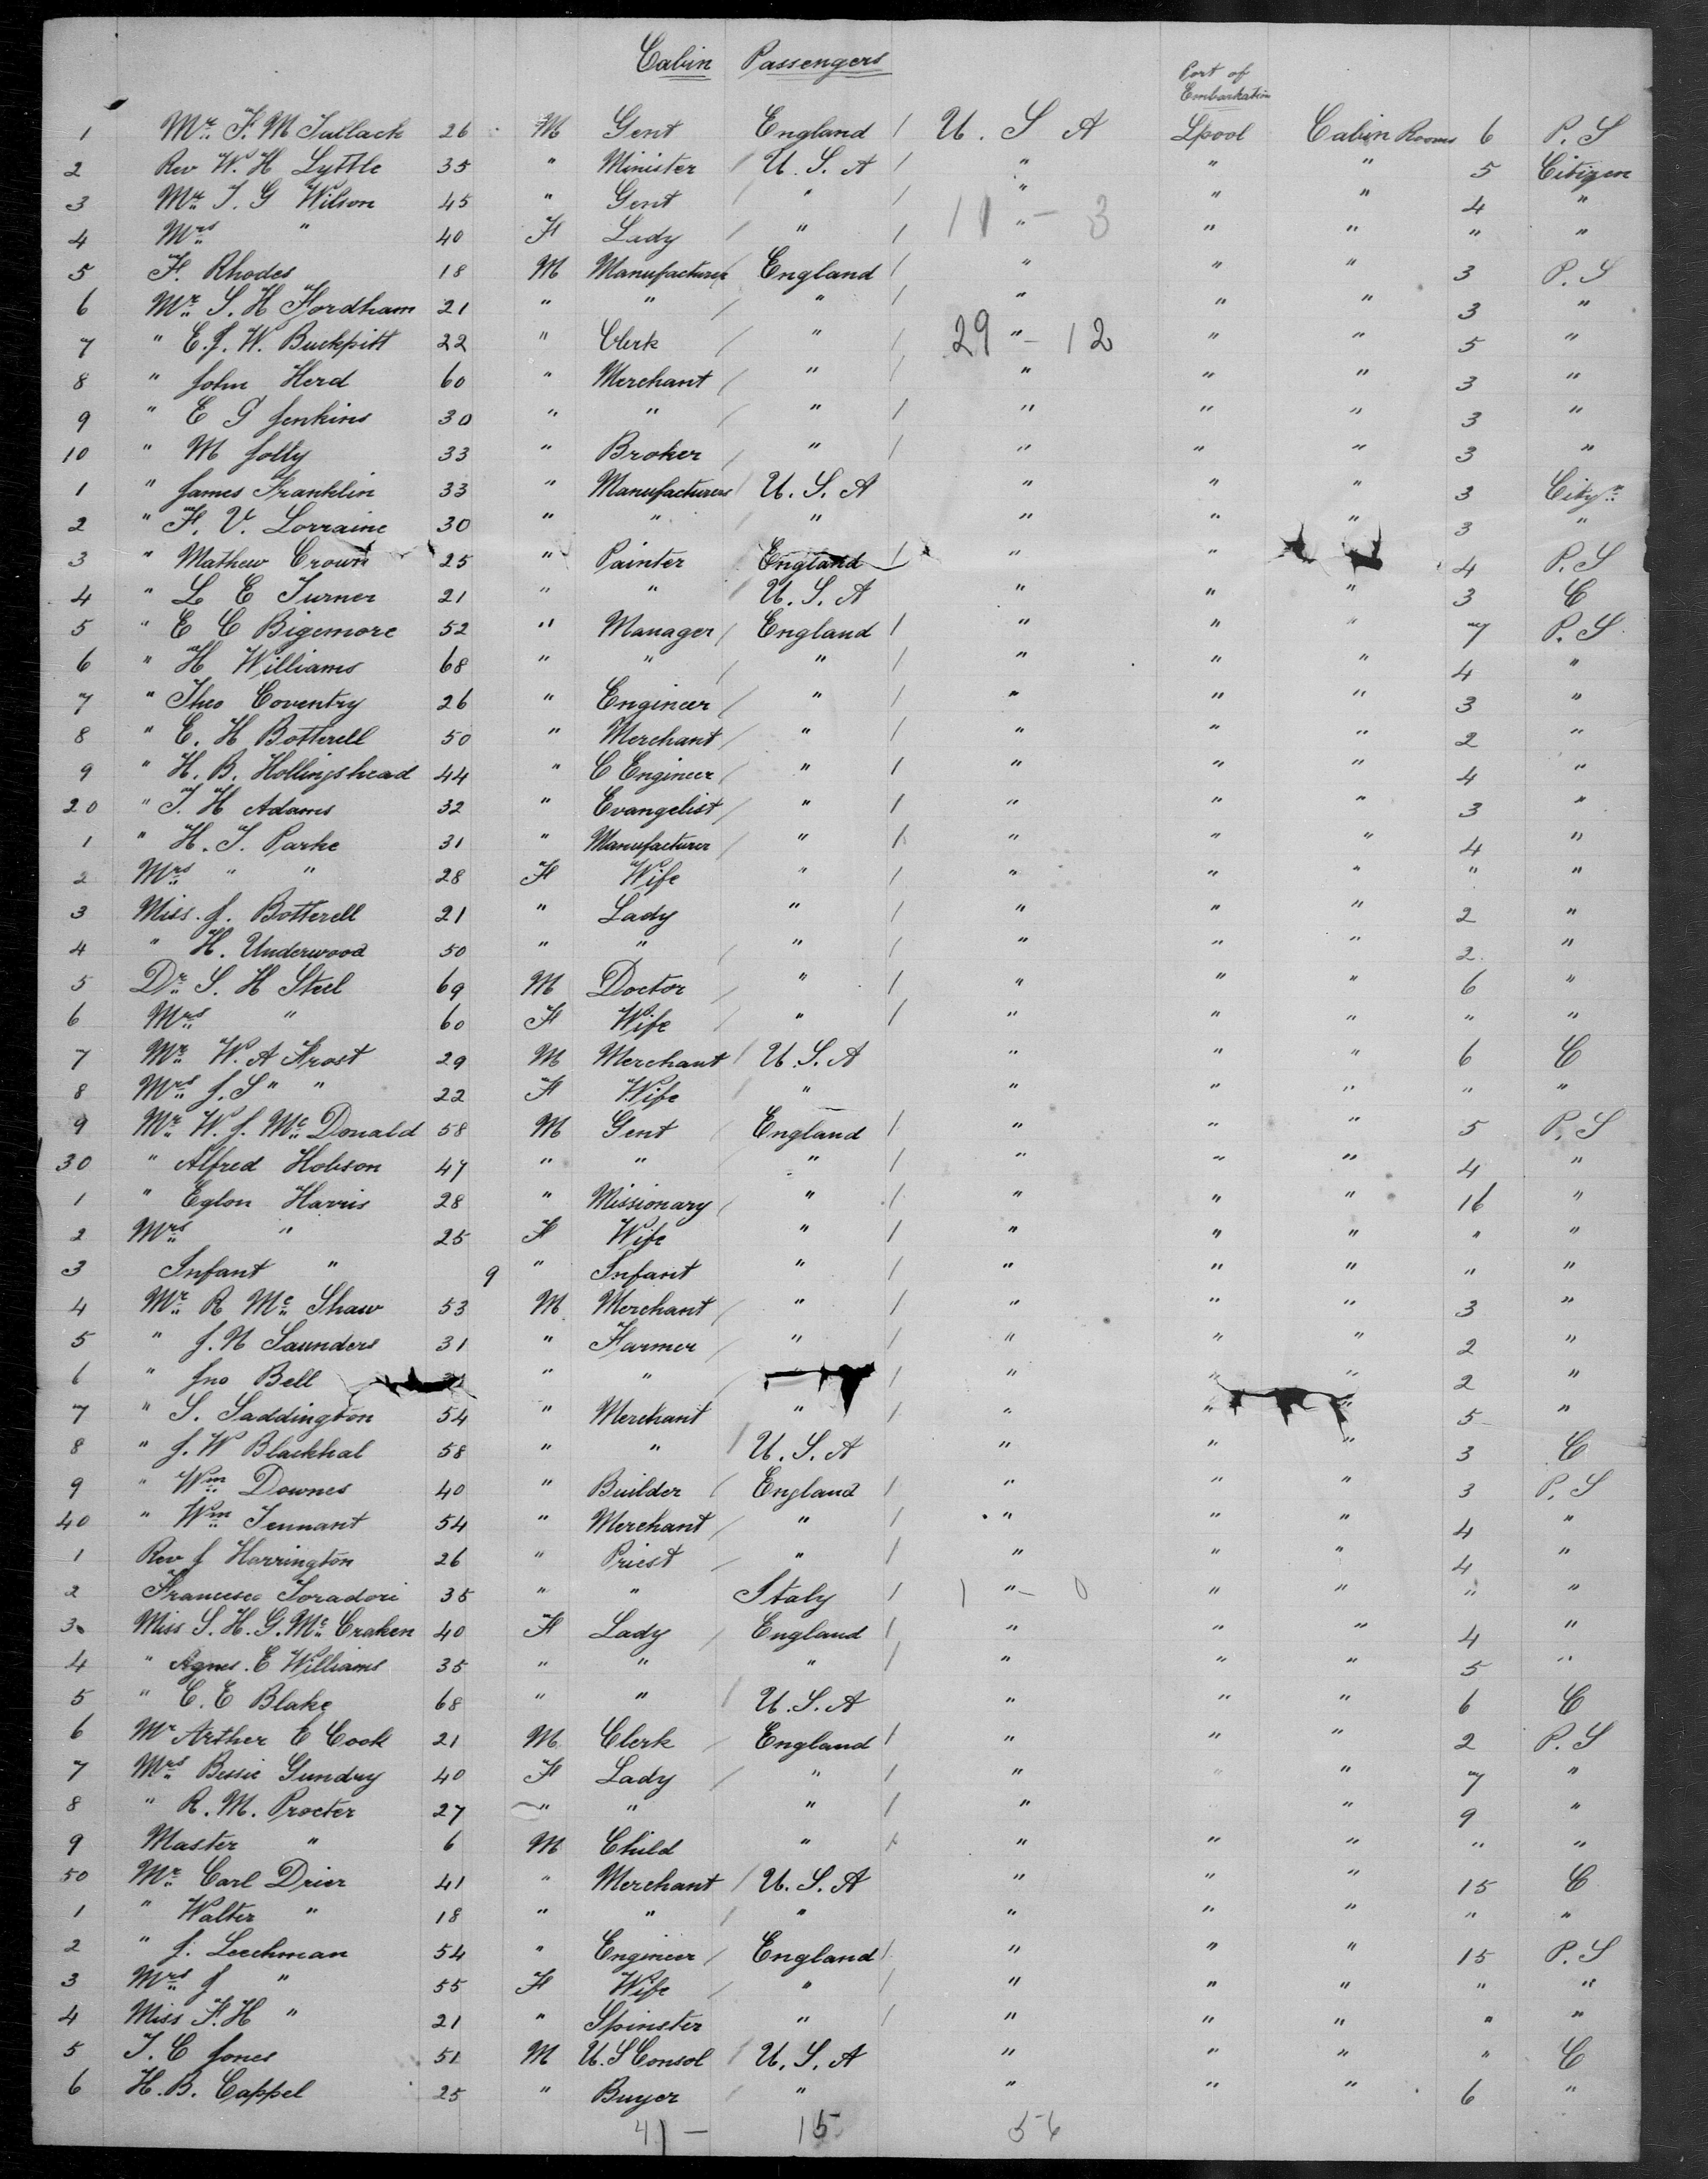 Cabin Passengers
Port of
Embarkation
1 Mr. F. M Tullack 26 M Gent England / U. S A Lpool Cabin Rooms 6 P. S
2 Rev W. H Lyttle 35 " Minister / U. S. A / " " " 5 Citizen
3 Mr. T. G Wilson 45 " Gent / " / " " " 4 "
4 Mrs " 40 F Lady / " / 11 " - 3 " " " "
5 F. Rhodes 18 M Manufacturer England / " " " 3 P. S
6 Mr. S. H Fordham 21 " " / " / " " " 3 "
7 " E. J. W. Buckpitt 22 " Clerk / " / 29 " - 12 " " 5 "
8 " John Herd 60 " Merchant / " / " " " 3 "
9 " E G Jenkins 30 " " / " / " " " 3 "
10 " M Jolly 33 " Broker / " / " " " 3 "
1 " James Franklin 33 " Manufacturers / U. S. A " " " 3 Citzn
2 " F. V. Lorraine 30 " " / " " " " 3 "
3 " Mathew Crown 25 " Painter England / " " 4 P. S
4 " L E Turner 21 " " / U. S. A " " " 3 C
5 " E C Bigemore 52 " Manager / England / " " " 7 P. S
6 " H Williams 68 " " / " / " " " 4 "
7 " Theo Coventry 26 " Engineer / " / " " " 3 "
8 " E. H Botterell 50 " Merchant / " / " " " 2 "
9 " H. B. Hollingshead 44 " C Engineer / " / " " " 4 "
20 " T. H Adams 32 " Evangelist / " / " " " 3 "
1 " H. T. Parke 31 " Manufacturer / " / " " " 4 "
2 Mrs " " 28 F Wife " / " " " " "
3 Miss. J. Botterell 21 " Lady " / " " " 2 "
4 " H. Underwood 50 " " / " / " " " 2. "
5 Dr. S. H Steel 69 M Doctor / " / " " " 6 "
6 Mrs " 60 F Wife / " / " " " " "
7 Mr. W. A Frost 29 M Merchant / U. S. A " " " 6 C
8 Mrs J. S " " 22 F Wife / " " " " " "
9 Mr. W. J. Mc Donald 58 M Gent / England / " " " 5 P. S
30 " Alfred Hobson 47 " " / " / " " " 4 "
1 " Eglon Harris 28 " Missionary / " / " " " 16 "
2 Mrs " 25 F Wife " / " " " " "
3 Infant " 9 " Infant " / " " " " "
4 Mr. R Mc Shaw 53 M Merchant / " / " " " 3 "
5 " J. N Saunders 31 " Farmer / " / " " " 2 "
6 " Jno Bell " " / / " " " 2 "
7 " S. Saddington 54 " Merchant " / " " " 5 "
8 " J. W Blackhal 58 " " / U. S. A " " " 3 C
9 " Wm Downes 40 " Builder / England / " " " 3 P. S
40 " Wm Tennant 54 " Merchant / " / " " " 4 "
1 Rev J Harrington 26 " Priest / " / " " " 4 "
2 Francesco Soradori 35 " " Italy / 1 " - 0 " " " "
3 Miss S. H. G. Mc Craken 40 F Lady / England / " " " 4 "
4 " Agnes. E Williams 35 " " / " / " " " 5 "
5 " C. E Blake 68 " " / U. S. A " " " 6 C
6 Mr Arther E Cook 21 M Clerk / England / " " " 2 P. S
7 Mrs Bessie Gundry 40 F Lady / " / " " " 7 "
8 " R. M. Procter 27 " " " / " " 9 "
9 Master " 6 M Child " / " " " " "
50 Mr. Carl Drier 41 " Merchant / U. S. A " " " 15 C
1 " Walter " 18 " " / " " " " " "
2 " J. Leechman 54 " Engineer / England / " " " 15 P. S
3 Mrs J " 55 F Wife / " / " " " " "
4 Miss F. H " 21 " Spinster " / " " " " "
5 T. C Jones 51 M U. S Consol / U. S. A " " " " C
6 H. B. Cappel 25 " Buyer / " " " " 6 "
41 - 15 56